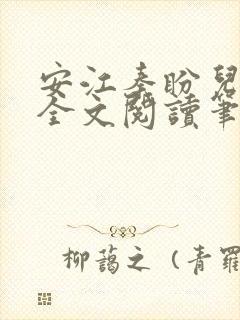 安江奉盼兒
全文閱讀筆
柳藹之（青羅